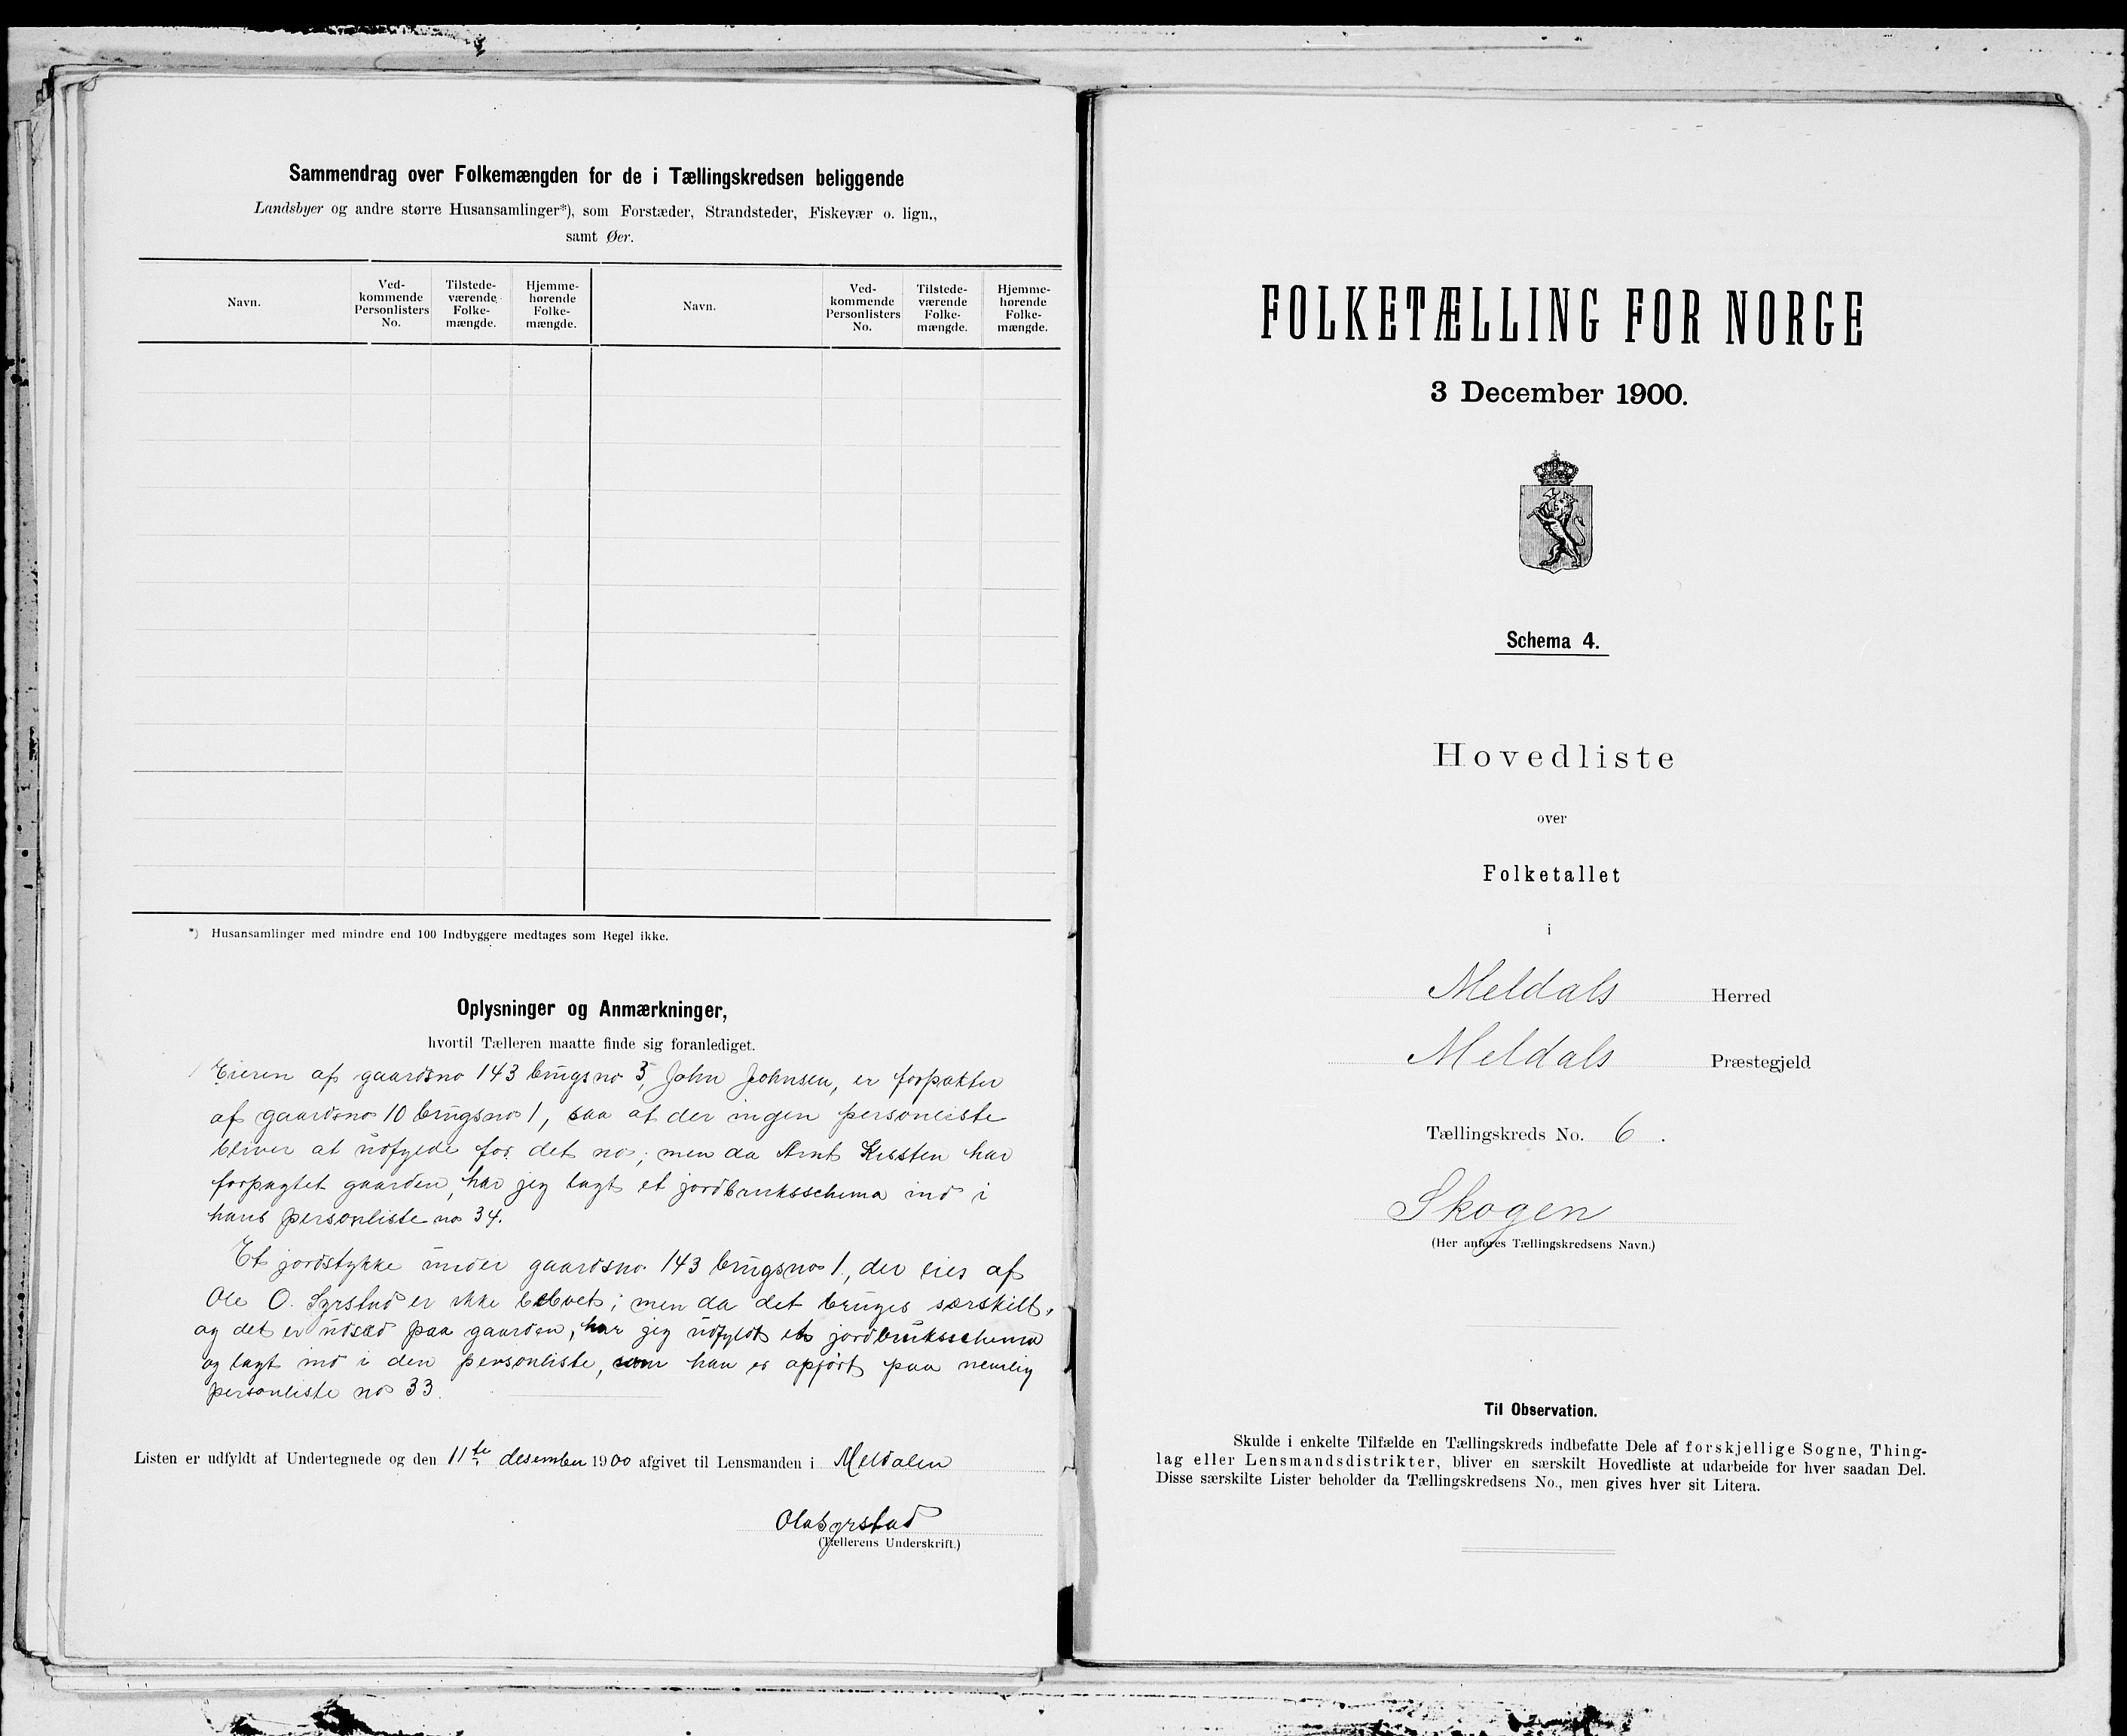 Sammendrag over Folkemængden for de i Tællingskredsen beliggende
Landsbyer og andre større Husansamlinger*), som Forstæder, Strandsteder, Fiskevær o. lign.,
samt Øer.
Navn.
Ved-
kommende
Personlisters
No.
Tilstede-
værende
Folke-
mængde.
Hjemme-
hørende
Folke-
mængde.
Navn.
Ved-
kommende
Personlisters
No.
Tilstede-
værende
Folke-
mængde.
Hjemme-
hørende
Folke-
mængde.
*) Husansamlinger med mindre end 100 Indbyggere medtages som Regel ikke.
Oplysninger og Anmærkninger,
hvortil Tælleren maatte finde sig foranlediget.
Eieren af gaardsno 143 brugsno 5, John Johnsen, er forpakter
af gaardsno 10 brugsno 1, saa at der ingen personliste
bliver at udfylde for det no; men da Arnt har
forpagtet gaarden, har jeg lagt et jordbruksschema ind i
hans personliste no 34.
Et jordstykke under gaardsno 143 brugsno 1, der eies af
Ole O. Syrstad er ikke beboet; men da det bruges særskilt,
og det er udsæd paa gaarden, har jeg udfyldt et jordbruksschema
og lagt ind i den personliste, som han er opført paa nemlig
personliste no 33.
Listen er udfyldt af Undertegnede og den 11te desember 1900 afgivet til Lensmanden i Meldalen
Ola Syrstad
(Tællerens Underskrift.)
FOLKETÆLLING FOR NORGE
3 December 1900.
Schema 4.
Hovedliste
over
Folketallet
i
Meldals Herred
Meldals Præstegjeld
Tællingskreds No. 6.
Skogen
(Her anføres Tællingskredsens Navn.)
Til Observation.
Skulde i enkelte Tilfælde en Tællingskreds indbefatte Dele af forskjellige Sogne, Thing-
lag eller Lensmandsdistrikter, bliver en særskilt Hovedliste at udarbeide for hver saadan Del.
Disse særskilte Lister beholder da Tællingskredsens No., men gives hver sit Litera.